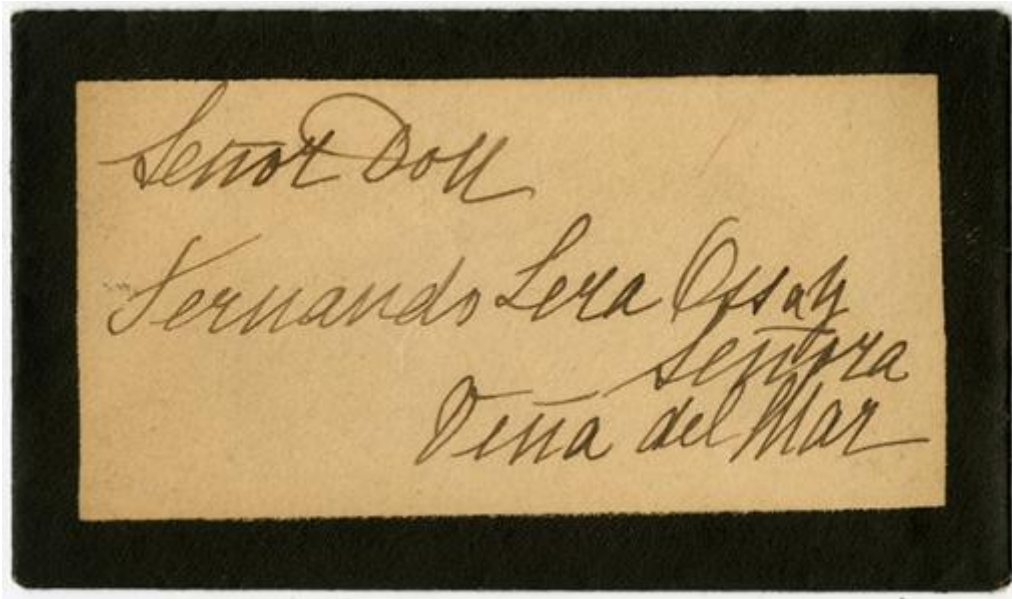 Señor Don
Fernando Lera Ossa y
Señora
Viña del Mar